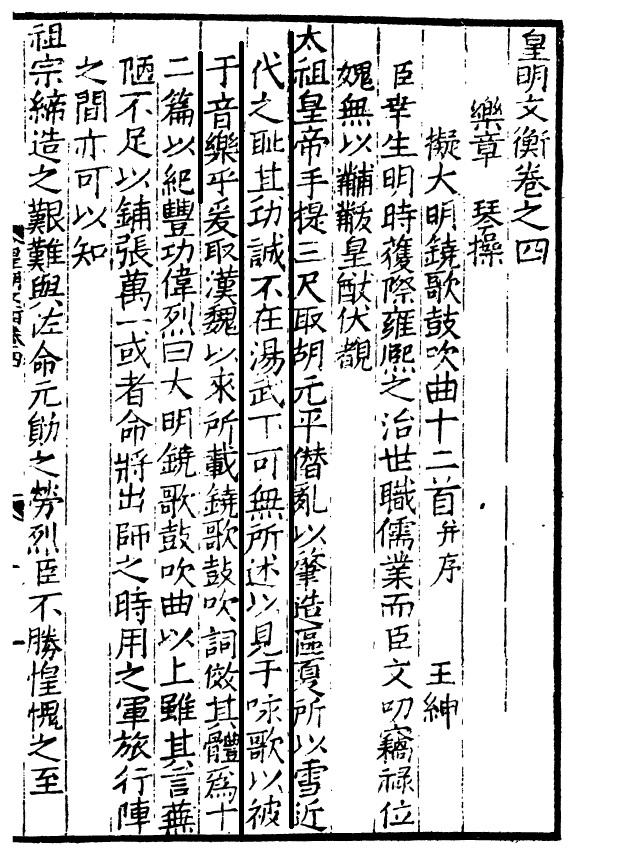 皇明文衡卷之四
樂章　琴操
擬大明鐃歌鼓吹曲十二首并序　王紳
臣幸生明時獲際雍熙之治世職儒業而臣文叨竊祿位
媿無以黼黻皇猷伏覩
太祖皇帝手提三尺取胡元平僭亂以肇造區夏所以雪近
代之恥其功誠不在湯武下可無所述以見于咏歌以被
于音樂乎爰取漢魏以來所載鐃歌鼓吹詞倣其體爲十
二篇以紀豐功偉烈曰大明鐃歌鼓吹曲以上雖其言蕪
陋不足以鋪張萬一或者命將出師之時用之軍旅行陣
之間亦可以知
祖宗締造之艱難與佐命元勛之勞烈臣不勝惶愧之至